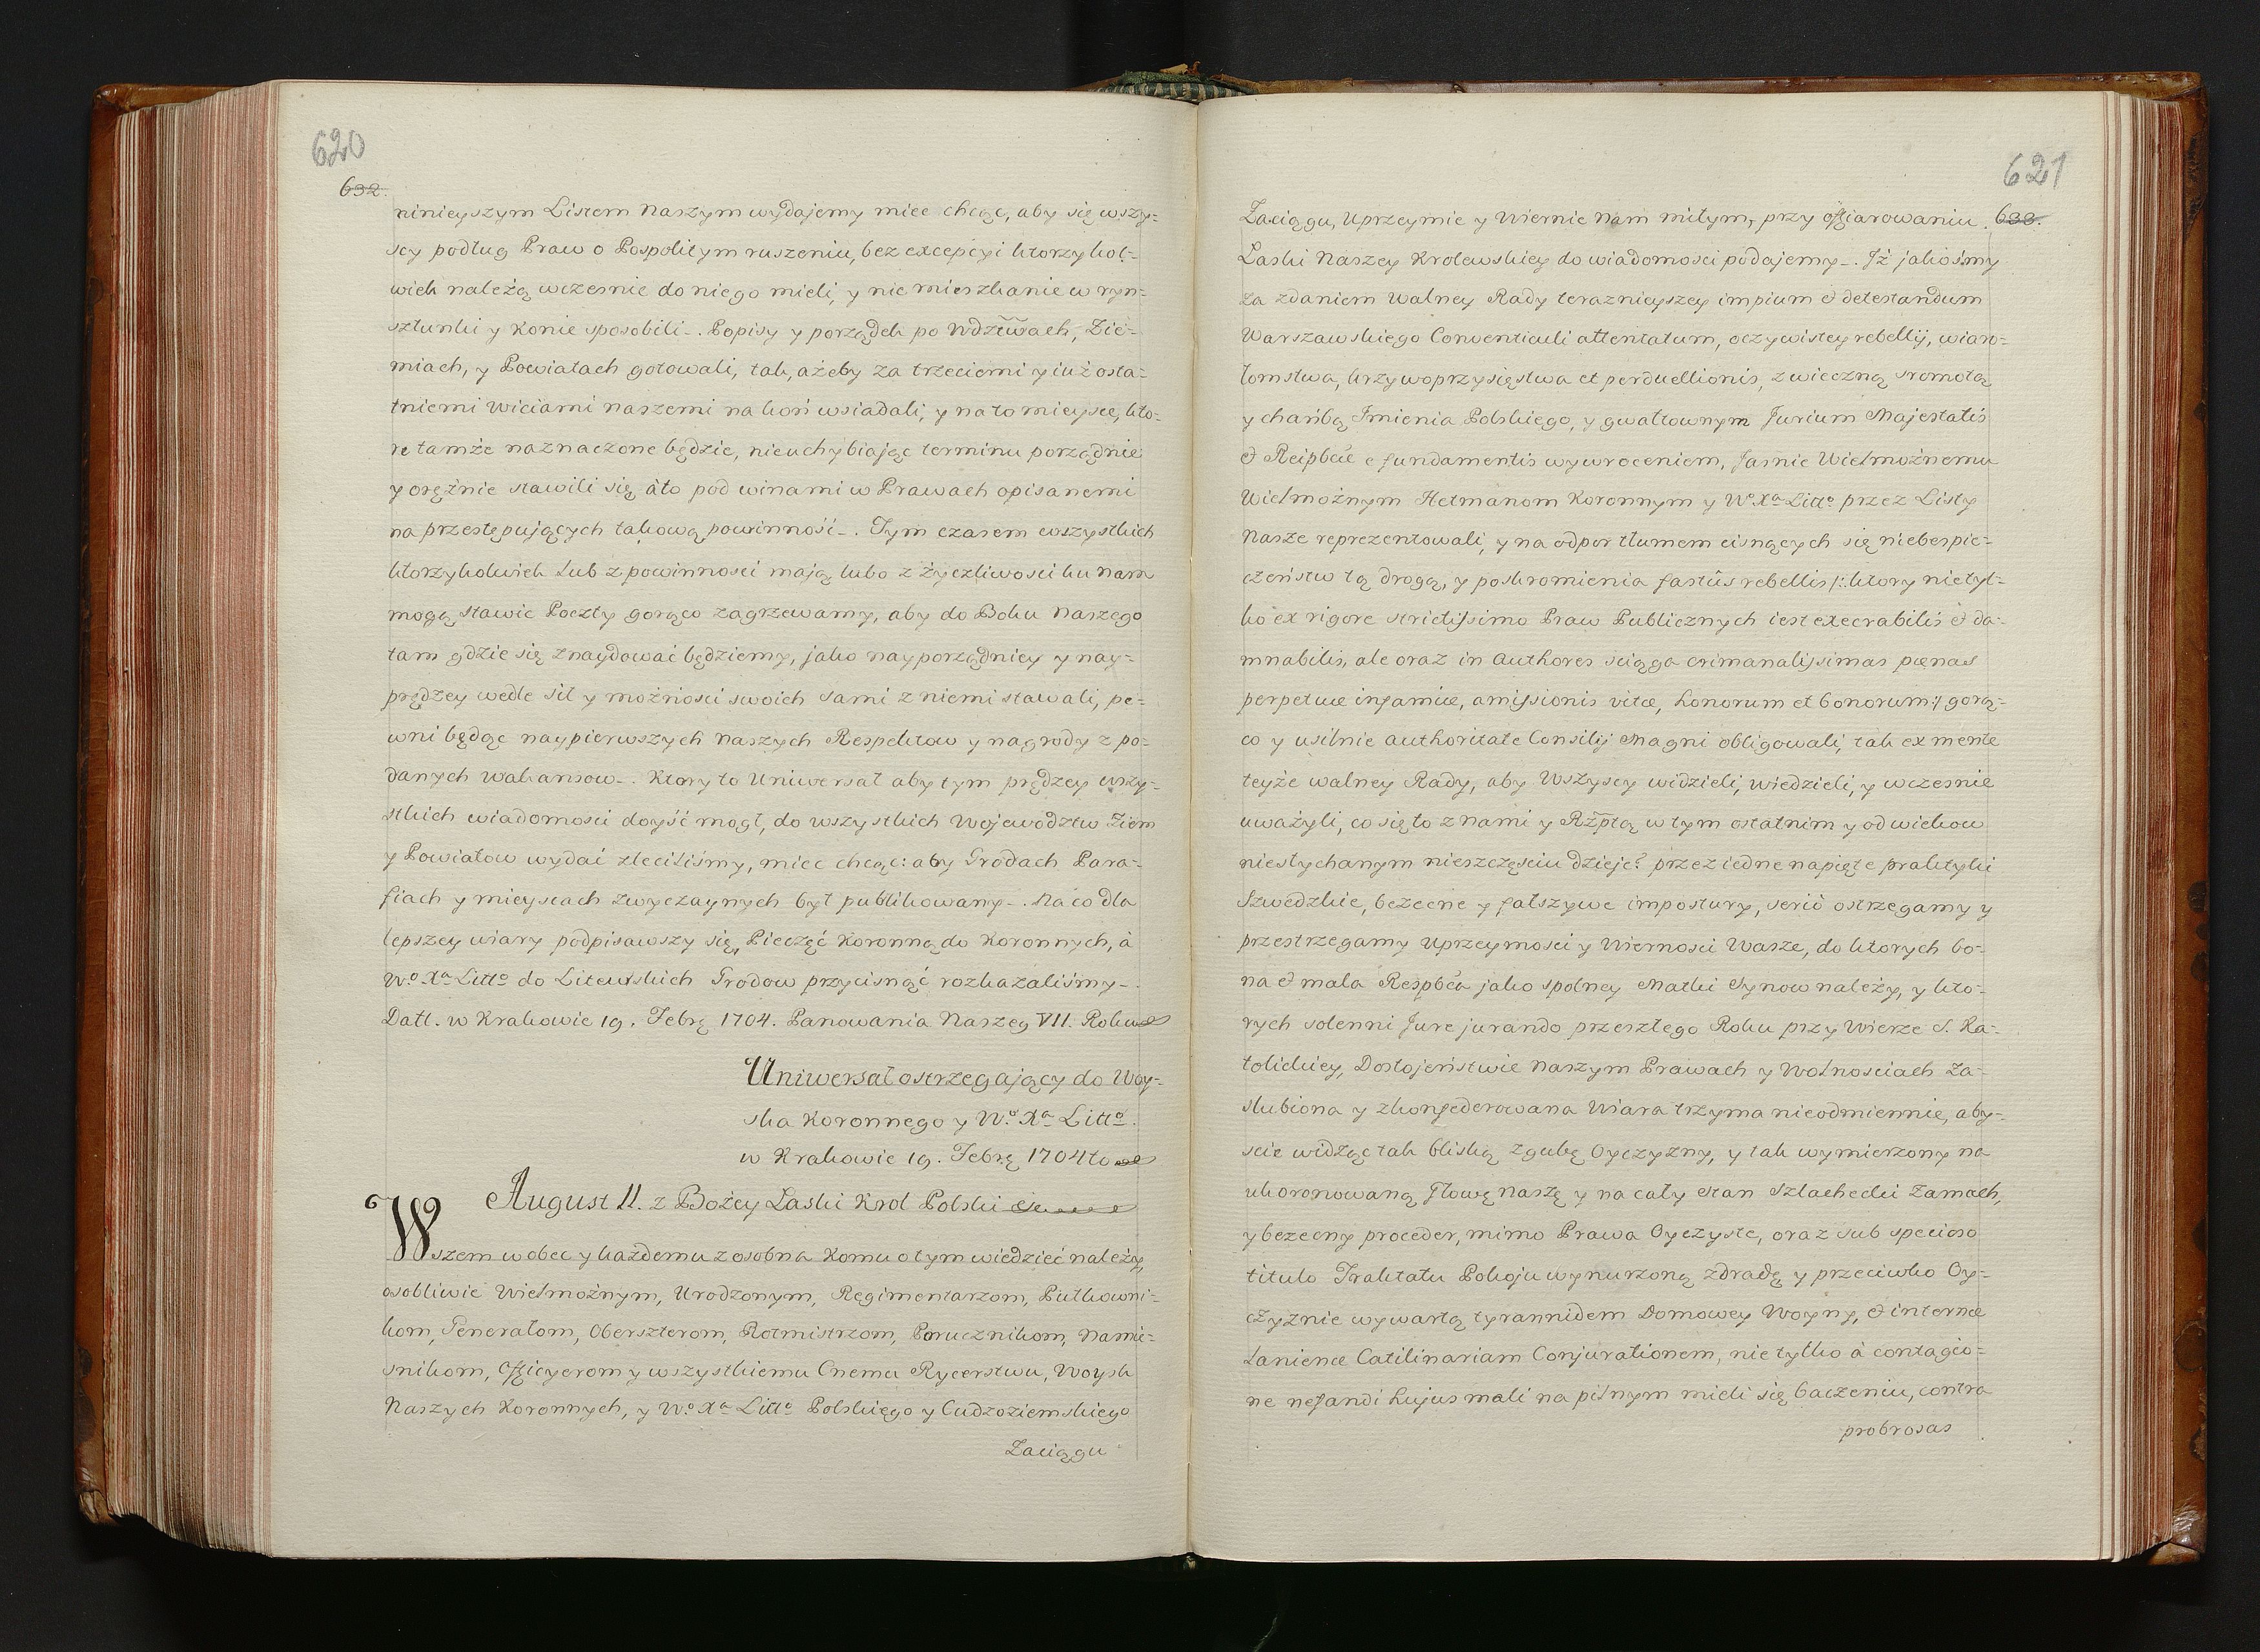 620
632.
ninieyszym Listem Naszym wydajemy miec chcąc, aby się wszy=
scy podług Praw o Pospolitym ruszeniu, bez excepcyi ktorzykol=
wiek należą wczesnie do niego mieli, y nie mieszkanie w ryn=
sztunki y konie sposobili_. Popisy y porządek po Wdztwach, Zie=
miach, y Powiatach gotowali, tak, ażeby za trzeciemi y iuż osta=
tniemi Wiciami naszemi na koń wsiadali, y na to mieysce, kto=
re tamże naznaczone będzie, nieuchybiając terminu porządnie
y orężnie stawili się, áto pod winami w Prawach opisanemi
na przestępujących takową powinność_. Tym czasem wszystkich
ktorzykolwiek lub z powinnosci mają lubo z życzliwosci ku nam
mogą stawic Poczty gorąco zagrzewamy, aby do Boku Naszego
tam gdzie się znaydować będziemy, jako nayporządniey y nay=
prędzey wedle sil y możnosci swoich sami z niemi stawali, pe=
wni będąc naypierwszych Naszych Respektow y nagrody z po=
danych wakansow_. Ktory to Uniwersał aby tym prędzey wszy=
stkich wiadomosci doyść mogł, do wszystkich Wojewodztw Ziem
y Powiatow wydać zleciliśmy, miec chcąc: aby Grodach Para=
fiach y mieyscach zwyczaynych był publikowany_. Na co dla
lepszey wiary podpisawszy się, Pieczęć Koronną do Koronnych, à
Wo. Xa Litto do Litewskich Grodow przycisnąć rozkazaliśmy_.
Datt. w Krakowie 19. Febrę 1704. Panowania Naszeg VII. Roku
Uniwersał ostrzegający do Woy=
ska Koronnego y Wo. Xa Litto.
w Krakowie 19. Febrę 1704to
August II. z Bożey Laski Krol Polski &c
Wszem w obec y każdemu z osobna komu o tym wiedzieć należy,
osobliwie Wielmożnym, Urodzonym, Regimentarzom, Pułkowni=
kom, Generałom, Oberszterom, Rotmistrzom, Porucznikom, Namie=
snikom, Officyerom y wszystkiemu Cnemu Rycerstwu, Woysk
Naszych Koronnych, y Wo. Xa Litto Polskięgo y Cudzoziemskiego
Zaciągu
621
633.
Zaciągu, Uprzeymie y Wiernie Nam miłym, przy offiarowaniu
Laski Naszey Krolewskiey do wiadomosci podajemy_. Iż jakośmy
za zdaniem Walney Rady teraznieyszey impium & detestandum
Warszawskiego Conventiculi attentatum, oczywistey rebellij, wiaro=
łomstwa, krzywoprzysięstwa et perduellionis, z wieczną sromotą
y chańbą Imienia Polskiego, y gwałtownym Jurium Majestatis
& Reipbcæ e fundamentis wywroceniem, Jasnie Wielmożnemu
Wielmożnym Hetmanom Koronnym y Wo Xa Litto przez Listy
Nasze reprezentowali, y na odpor tłumem cisnących się niebespie=
czeństw tą drogą, y poskromienia fastûs rebellis /: ktory nietyl=
ko ex rigore strictissimo Praw Publicznych iest execrabilis & da=
mnabilis, ale oraz in Authores sciąga crimanalissimas pœnas
perpetuæ infamiæ, amissionis vitæ, honorum et bonorum :/ gorą=
co y usilnie authoritate Consilij Magni obligowali, tak ex mente
teyże walney Rady, aby Wszyscy widzieli, wiedzieli, y wczesnie
uważyli, co się to z nami y Rzptą w tym ostatnim y od wiekow
niesłychanym nieszczęsciu dzieje? przez iedne napięte praktyki
Szwedzkie, bezecne y fałszywe impostury, seriò ostrzegamy y
przestrzegamy Uprzeymosci y Wiernosci Wasze, do ktorych bo=
na & mala Respbca jako spolney Matki Synow należy, y kto=
rych solenni Jure jurando przeszłego Roku przy Wierze S. Ka=
tolickiey, Dostojeństwie Naszym Prawach y Wolnosciach Za=
slubiona y zkonfederowana Wiara trzyma nieodmiennie, aby=
scie widząc tak bliską zgubę Oyczyzny, y tak wymierzony na
ukoronowaną Głowę Naszę y na cały stan Szlachecki zamach,
y bezecny proceder, mimo Prawa Oyczyste, oraz sub specioso
titulo Traktatu Pokoju wynurzoną zdradę y przeciwko Oy=
czyznie wywartą tyrannidem Domowey Woyny, & internæ
Lanienæ Catilinariam Conjurationem, nie tylko à contagio=
ne nefandi hujus mali na pilnym mieli się baczeniu, contra
probrosas